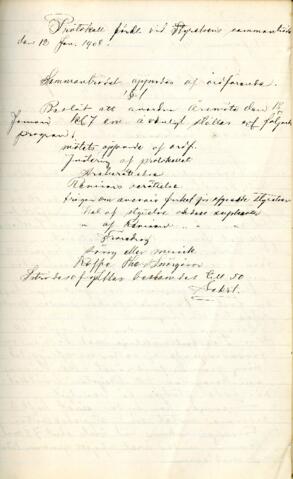 Protokoll fördt vid Styrelsens sammanträde
den 12 Jan. 1908.
Sammanträdet öppnades af ordförande.
§1
Beslöt att anordna Årsmöte den 19
Januari kl. 6,7 em. å lokal följande
program:
mötets öppnande af ordf.
Justering af protokollet
Årsberättelse
Revisions berättelse
frågan om ansvars frihet för afgående Styrelsen
Val af styrelse suppleanter
" af Revisorer " "
Föredrag
Sång eller musik
Kaffe
bestämdes till 50